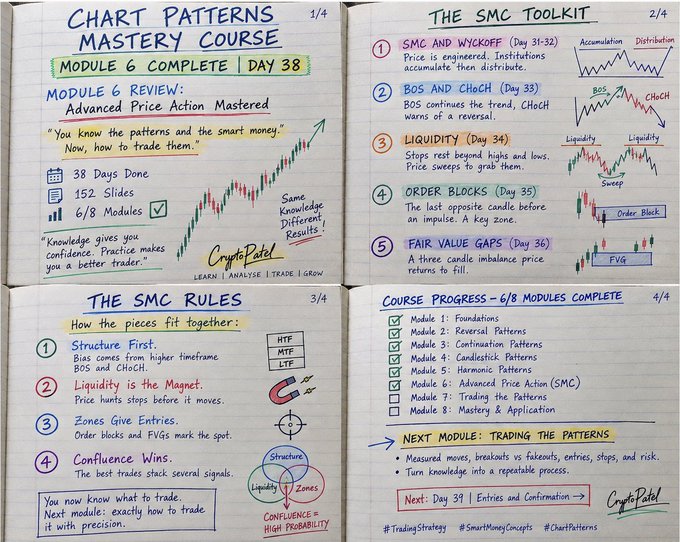 CHART PATTERNS
MASTERY COURSE
1/4
MODULE 6 COMPLETE | DAY 38
MODULE 6 REVIEW:
Advanced Price Action Mastered
"You know the patterns and the smart money."
Now, how to trade them."
38 Days Done
152 Slides
6/8 Modules
Same
Knowledge
Different
Results!
"Knowledge gives you
confidence. Practice makes
you a better trader."
CryptoPatel
LEARN | ANALYSE | TRADE | GROW
THE SMC TOOLKIT
2/4
1 SMC AND WYCKOFF (Day 31-32)
Price is engineered. Institutions
accumulate then distribute.
Accumulation
Distribution
2 BOS AND CHoCH (Day 33)
BOS continues the trend, CHoCH
warns of a reversal.
BOS
CHoCH
3 LIQUIDITY (Day 34)
Stops rest beyond highs and lows.
Price sweeps to grab them.
Liquidity
Liquidity
Sweep
4 ORDER BLOCKS (Day 35)
The last opposite candle before
an impulse. A key zone.
Order Block
5 FAIR VALUE GAPS (Day 36)
A three candle imbalance price
returns to fill.
FVG
THE SMC RULES
3/4
How the pieces fit together:
1 Structure First.
Bias comes from higher timeframe
BOS and CHoCH.
HTF
MTF
LTF
2 Liquidity is the Magnet.
Price hunts stops before it moves.
3 Zones Give Entries.
Order blocks and FVGs mark the spot.
4 Confluence Wins.
The best trades stack several signals.
Structure
Liquidity
Zones
CONFLUENCE =
HIGH PROBABILITY
You now know what to trade.
Next module: exactly how to trade
it with precision.
COURSE PROGRESS – 6/8 MODULES COMPLETE
4/4
Module 1: Foundations
Module 2: Reversal Patterns
Module 3: Continuation Patterns
Module 4: Candlestick Patterns
Module 5: Harmonic Patterns
Module 6: Advanced Price Action (SMC)
Module 7: Trading the Patterns
Module 8: Mastery & Application
NEXT MODULE: TRADING THE PATTERNS
• Measured moves, breakouts vs fakeouts, entries, stops, and risk.
• Turn knowledge into a repeatable process.
Next: Day 39 | Entries and Confirmation →
CryptoPatel
#TradingStrategy #SmartMoneyConcepts #ChartPatterns